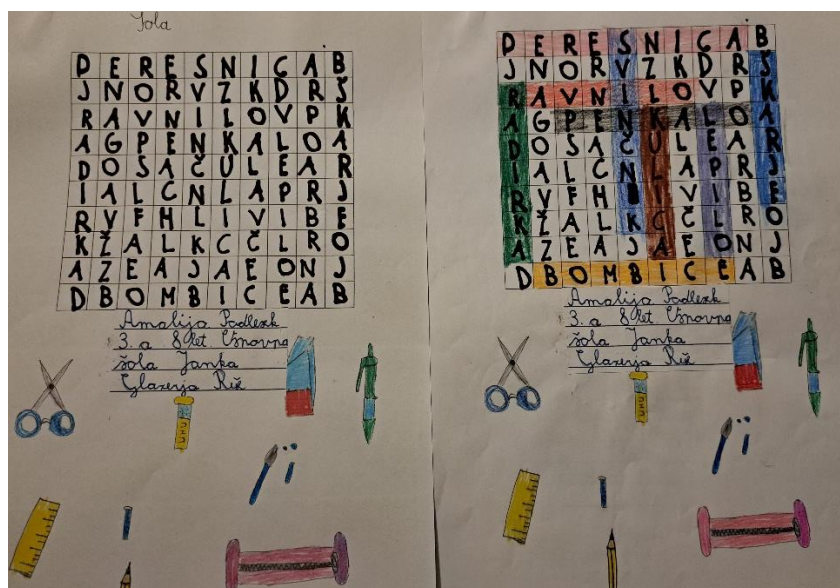 Šola
D E R E S N I C A B
J N O R V Z K D R Š
R A V N I L O V P K
A G P E N K A L O A
D O S A Č U L E A R
I A L C N L A P R J
R V F H L I V I B E
K Ž A L K C Č L R O
A Z E A J A E O N J
D B O M B I C E A B
Amalija
3. a 8 let Osnovna
šola Janka
Glazerja
UHU
D E R E S N I C A B
J N O R V Z K D R Š
R A V N I L O V P K
A G P E N K A L O A
D O S A Č U L E A R
I A L C N L A P R J
R V F H I V I B E
K Ž A L K C Č L R O
A Z E A J A E O N J
D B O M B I C E A B
Amalija
3. a 8 let Osnovna
šola Janka
Glazerja